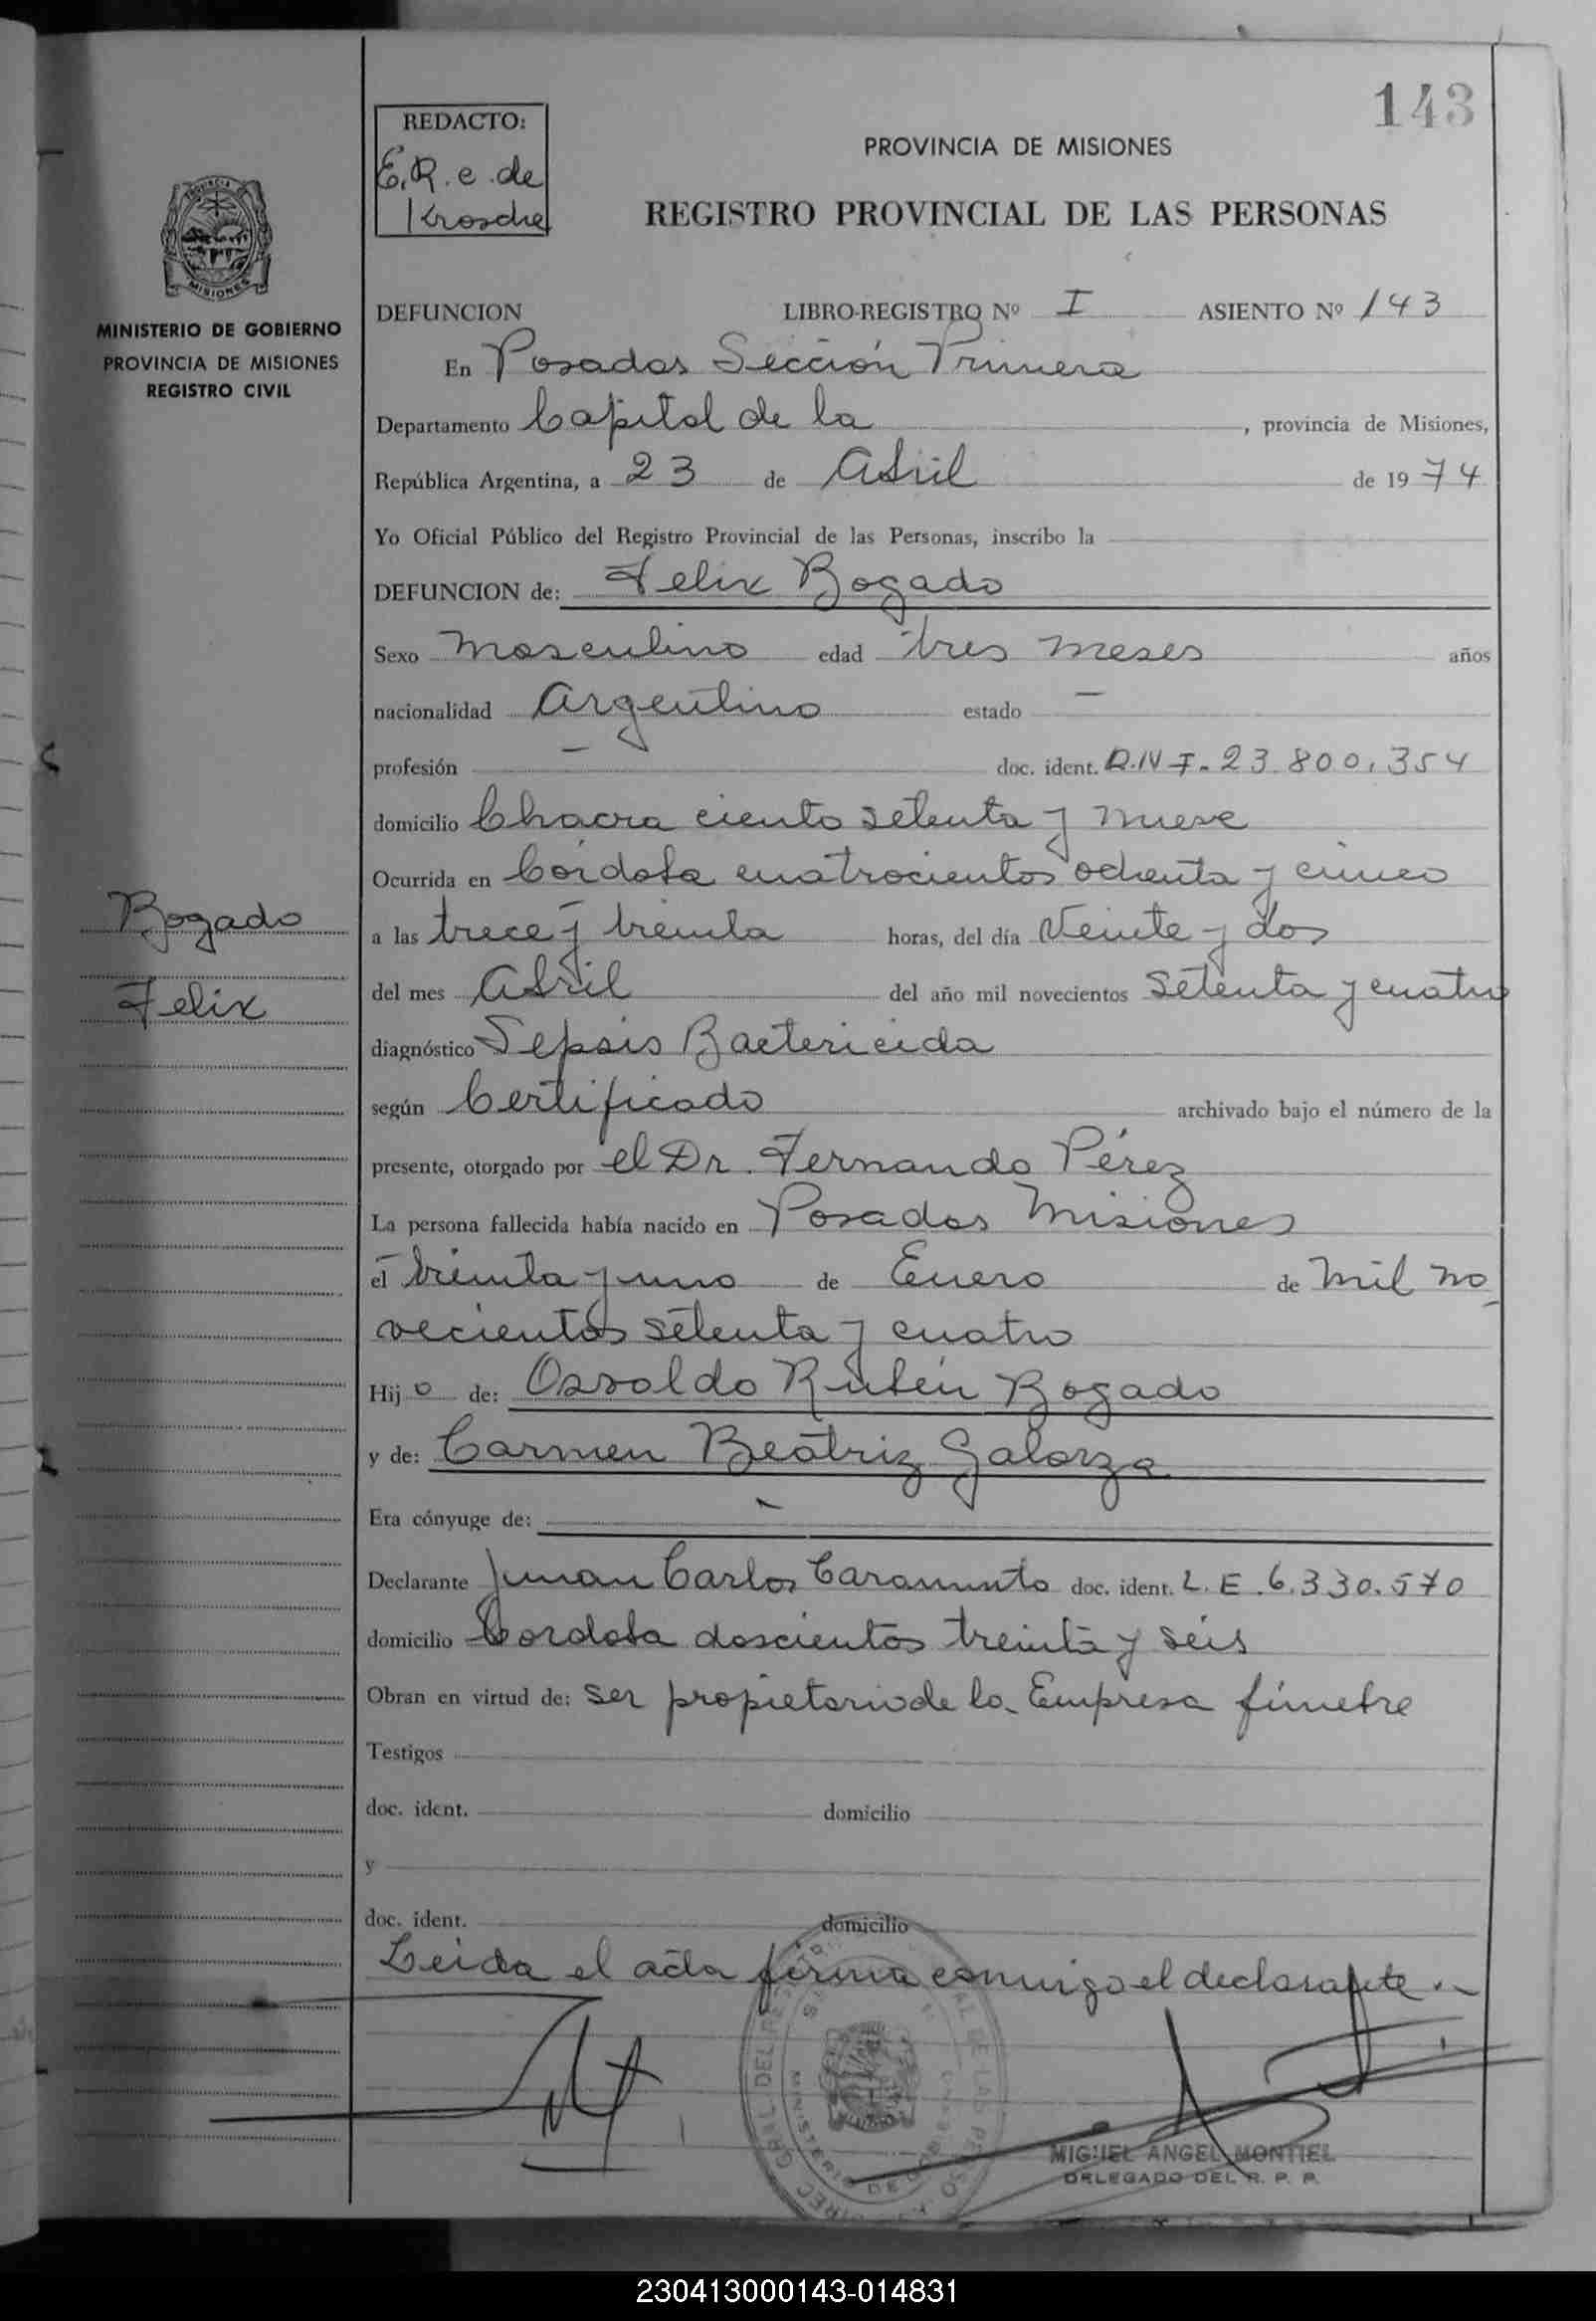 143
REDACTO:
E.R. e. de
Krosche
PROVINCIA DE MISIONES
REGISTRO PROVINCIAL DE LAS PERSONAS
MISIONES
MINISTERIO DE GOBIERNO
PROVINCIA DE MISIONES
REGISTRO CIVIL
DEFUNCION LIBRO-REGISTRO Nº I ASIENTO Nº 143
En Posadas Sección Primera
Departamento Capital de la , provincia de Misiones,
República Argentina, a 23 de Abril de 1974
Yo Oficial Público del Registro Provincial de las Personas, inscribo la
DEFUNCION de: Felix Bogado
Sexo Masculino edad tres meses años
nacionalidad Argentino estado —
profesión — doc. ident. D.N.I. 23.800.354
domicilio Chacra ciento setenta y nueve
Ocurrida en Córdoba cuatrocientos ochenta y cinco
a las trece y treinta horas, del día Veinte y dos
del mes Abril del año mil novecientos setenta y cuatro
diagnóstico Sepsis Bactericida
según Certificado archivado bajo el número de la
presente, otorgado por el Dr. Fernando Pérez
La persona fallecida había nacido en Posadas Misiones
el treinta y uno de Enero de mil no
vecientos setenta y cuatro
Hijo de: Osvaldo Rubén Bogado
y de: Carmen Beatriz Galarza
Era cónyuge de: -
Declarante Juan Carlos doc. ident. L.E. 6.330.570
domicilio Cordoba doscientos treinta y seis
Obran en virtud de: ser propietario de la Empresa fúnebre
Testigos
doc. ident. domicilio
y
doc. ident. domicilio
Leida el acta firma conmigo el declarante.-
Bogado
Felix
MIGUEL ANGEL MONTIEL
DELEGADO DEL R. P. P.
230413000143-014831